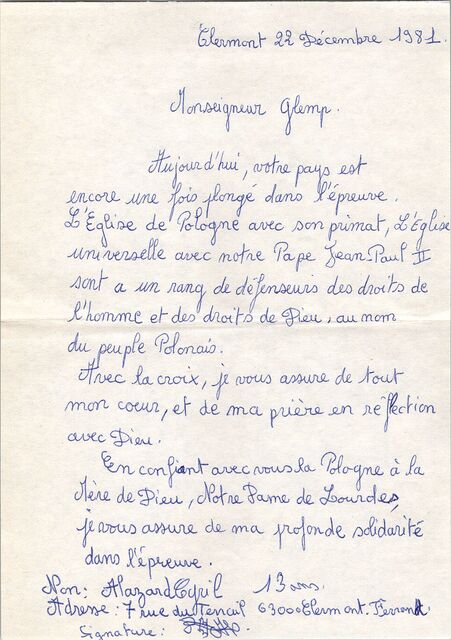 Clermont 22 Décembre 1981.
Monseigneur Glemp.
Aujourd'hui, votre pays est
encore une fois plongé dans l'épreuve.
L'Eglise de Pologne avec son primat, L'Eglise
universelle avec notre Pape Jean-Paul II
sont a un rang de défenseurs des droits de
l'homme et des droits de Dieu, au nom
du peuple Polonais.
Avec la croix, je vous assure de tout
mon coeur, et de ma prière en réflection
avec Dieu.
En confiant avec vous la Pologne à la
Mère de Dieu, Notre Dame de Lourdes,
je vous assure de ma profonde solidarité
dans l'épreuve.
Non: Alazard Cyril 13 ans.
Adresse: 7 rue du 63000 Clermont. Ferrand
Signature: